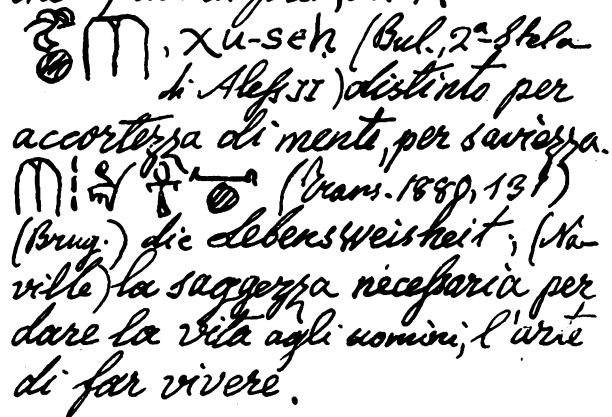 , χu-seḥ (Bul., 2ª Stela
di Aless II) distinto per
accortezza di mente, per saviezza.
(Trans. 1880, 131)
(Brug.) die Lebensweisheit; (Na-
ville) la saggezza necessaria per
dare la vita agli uomini, l'arte
di far vivere.